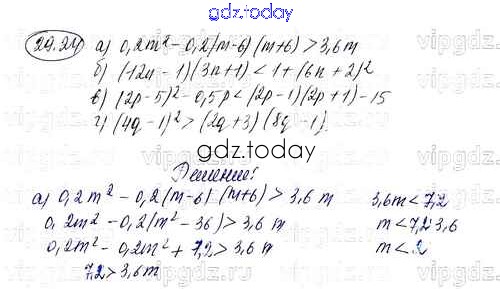 gdz.today
29.24 а) 0,2m² - 0,2(m-6)(m+6) > 3,6m
б) (12n - 1)(3n+1) < 1 + (6n + 2)²
в) (2p - 5)² - 0,5p < (2p - 1)(2p + 1) - 15
г) (4q - 1)² > (2q + 3)(8q - 1)
gdz.today
Решение:
а) 0,2m² - 0,2(m-6)(m+6) > 3,6m
0,2m² - 0,2(m² - 36) > 3,6m
0,2m² - 0,2m² + 7,2 > 3,6m
7,2 > 3,6m
3,6m < 7,2
m < 7,2:3,6
m < 2